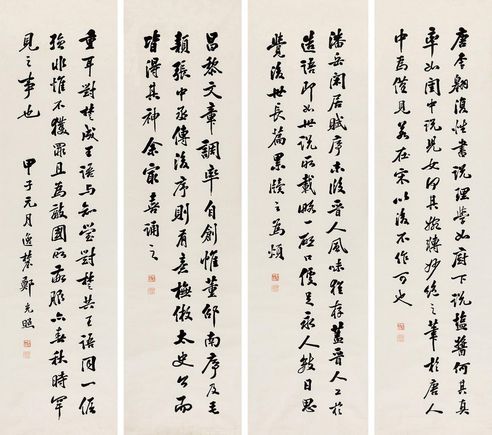 唐李翱復性書說理學如廚下說鹽醬何其真
率如閨中說兒女何其婉轉妙絕之筆於唐人
中為僅見若在宋以後不作可也
潘岳閑居賦序末段晉人風味猶存蓋晉人工於
造語即如世說所載略一啟口便足永人數日思
覺後世長篇累牘之為煩
昌黎文章調率自創惟董邵南序及毛
穎張中丞傳後序則有意橅倣太史公而
皆得其神余最喜誦之
重耳對楚成王語與知罃對楚共王語同一倔
強非惟不獲罪且為敵國所敬服亦春秋時罕
見之事也 甲子元月 鄭